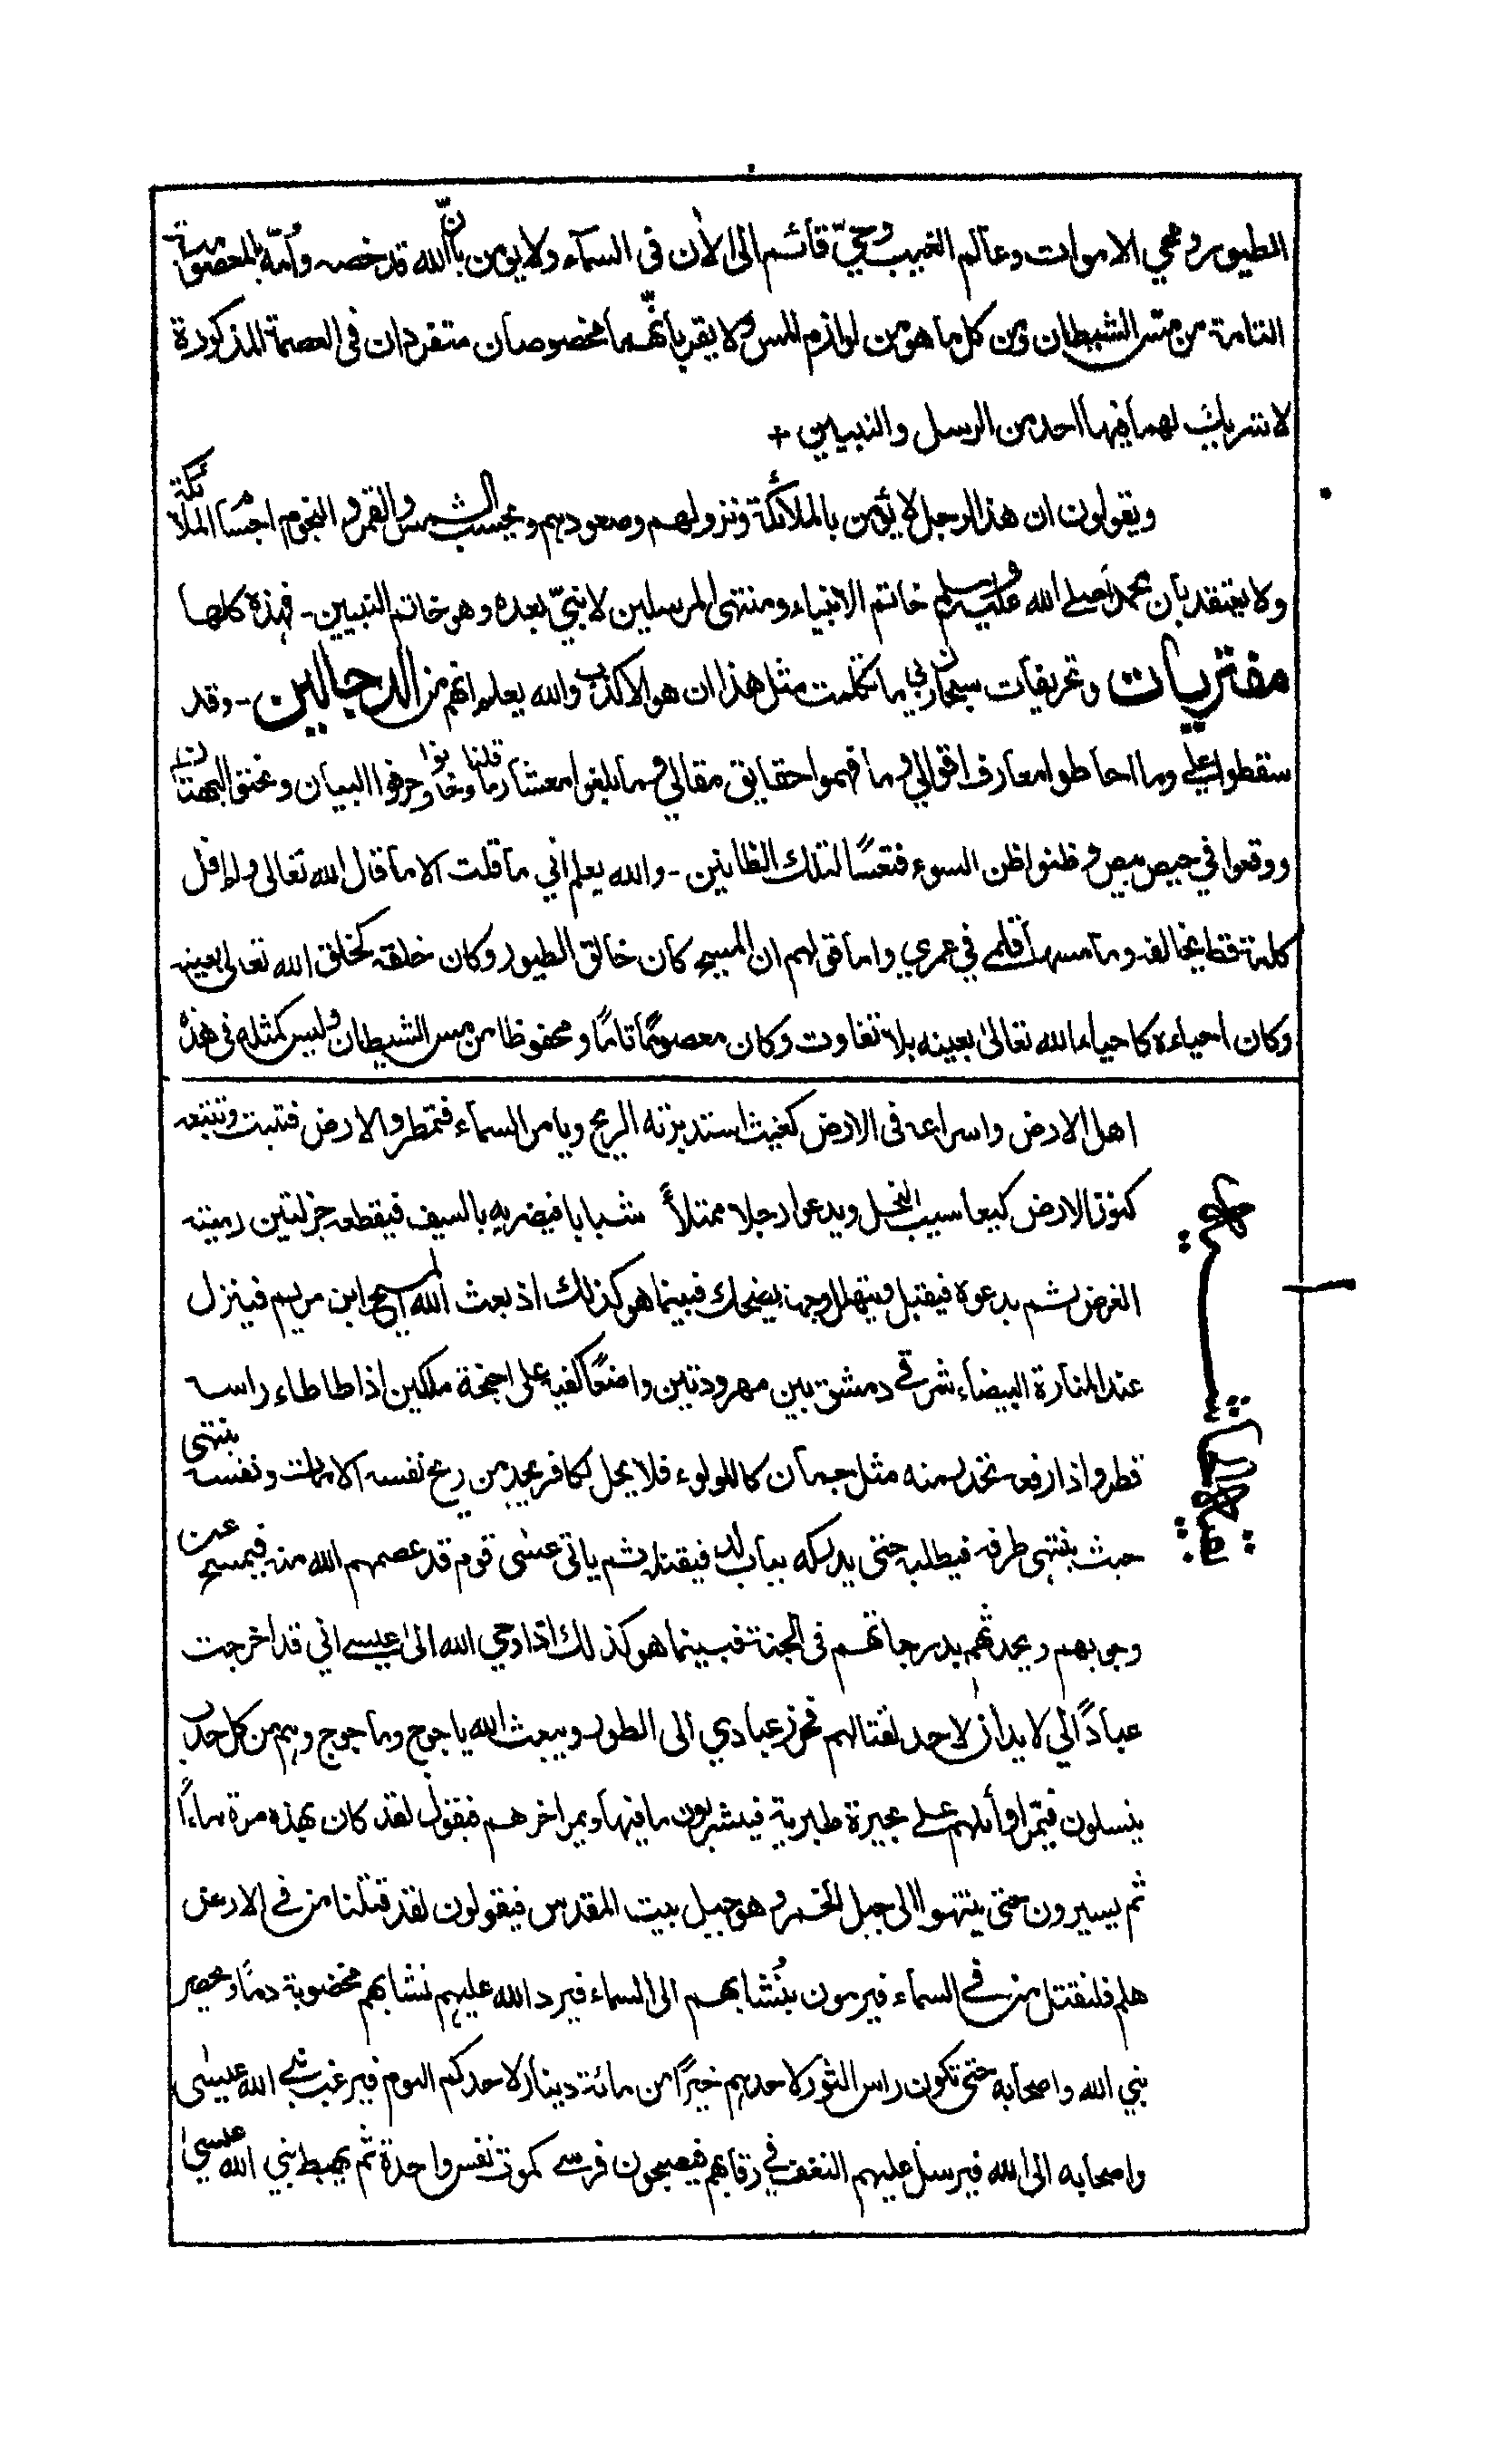 الطيور ومحي الاموات وعالم الغيب وحيّ قائم الى الأن فى السمآء ولا يؤمن بأنّ الله قد خصه وأمّه بالمعصومية
التامة من مس الشيطان ومن كل ما هو من لوازم المس ولا يقر بأنّهما مخصوصان متفردان فى العصمة المذكورة
لا شريك لهما فيها احد من الرسل والنبيين +
ويقولون ان هذا الرجل لا يؤمن بالملائكة ونزولهم وصعودهم ويحسب الشمس والقمر والنجوم اجسام الملائكة
ولا يعتقد بأن محمدا صلے الله عليه وسلم خاتم الانبياء ومنتهى المرسلين لا نبيّ بعده وهو خاتم النبيين - فهذه كلها
مفتريات وتحريفات سبحان ربي ما تكلمت مثل هذا ان هو الا كذب والله يعلم انهم من الدجالين - وقد
سقطوا علي وما احاطوا معارف اقوالي وما فهموا حقايق مقالي وما بلغوا معشار ما قلنا وخانوا وحرفوا البيان ونحتوا البهتان
ووقعوا في حيص بيص وظنوا ظن السوء فتعسًا لتلك الظانين - والله يعلم اني ما قلت الا ما قال الله تعالى ولم اقل
كلمة قط يخالفه وما مسها قلمے في عمري واما قولهم ان المسيح كان خالق الطيور وكان خلقه كخلق الله تعالى بعينه
وكان احياءه كاحياء الله تعالىٰ بعينه بلا تفاوت وكان معصومًا تامًا ومحفوظا من مس الشيطان وليس كمثله فى هذه
اهل الارض واسراعه فى الارض كغيث استدبرته الريح ويامر السمآء فتمطر والارض فتنبت وتتبعه
كنوز الارض كيعاسيب النحل ويدعوا رجلا ممتلأً شبابا فيضربه بالسيف فيقطعه جزلتين رمية
الغرض ثم يدعوه فيقبل ويتهلل وجهه يضحك فبينما هو كذلك اذ بعث الله المسيح ابن مريم فينزل
عند المنارة البيضاء شرقے دمشق بين مهرودتين واضعًا كفيه على اجنحة ملكين اذا طاطاء راسه
قطر واذا رفعه تحدر منه مثل جمان كاللولوء فلا يحل لكافر يجد من ريح نفسه الا مات ونفسه ينتهى
حيث ينتهى طرفه فيطلبه حتى يدركه بباب لد فيقتله ثم ياتى عيسٰى قوم قد عصمهم الله منه فيمسح عن
وجوههم ويحدثهم بدرجاتهم فى الجنة فبينما هو كذلك اذا وحي الله الىٰ عيسے اني قد اخرجت
عبادًا لي لا يدان لاحد لقتالهم فحرز عبادي الى الطور ويبعث الله ياجوج وماجوج وهم من كل حدب
ينسلون فيمر اوائلهم علے بحيرة طبرية فيشربون ما فيها ويمر اخرهم فيقول لقد كان بهذه مرة ماءً
ثم يسيرون حتى ينتهوا الى جبل الخمر وهو جبل بيت المقدس فيقولون لقد قتلنا من فے الارض
هلم فلنقتل من فے السمآء فيرمون بنُشابهم الى السماء فيرد الله عليهم نشابهم مخضوبة دمًا ويحصر
نبي الله واصحابه حتى تكون راس الثور لاحدهم خيرًا من مائة دينار لاحدكم اليوم فيرغب نبي الله عيسٰى
واصحابه الى الله فيرسل عليهم النغف في رقابهم فيصبحون فرسے كموت نفس واحدة ثم يهبط نبي الله عيسىٰ